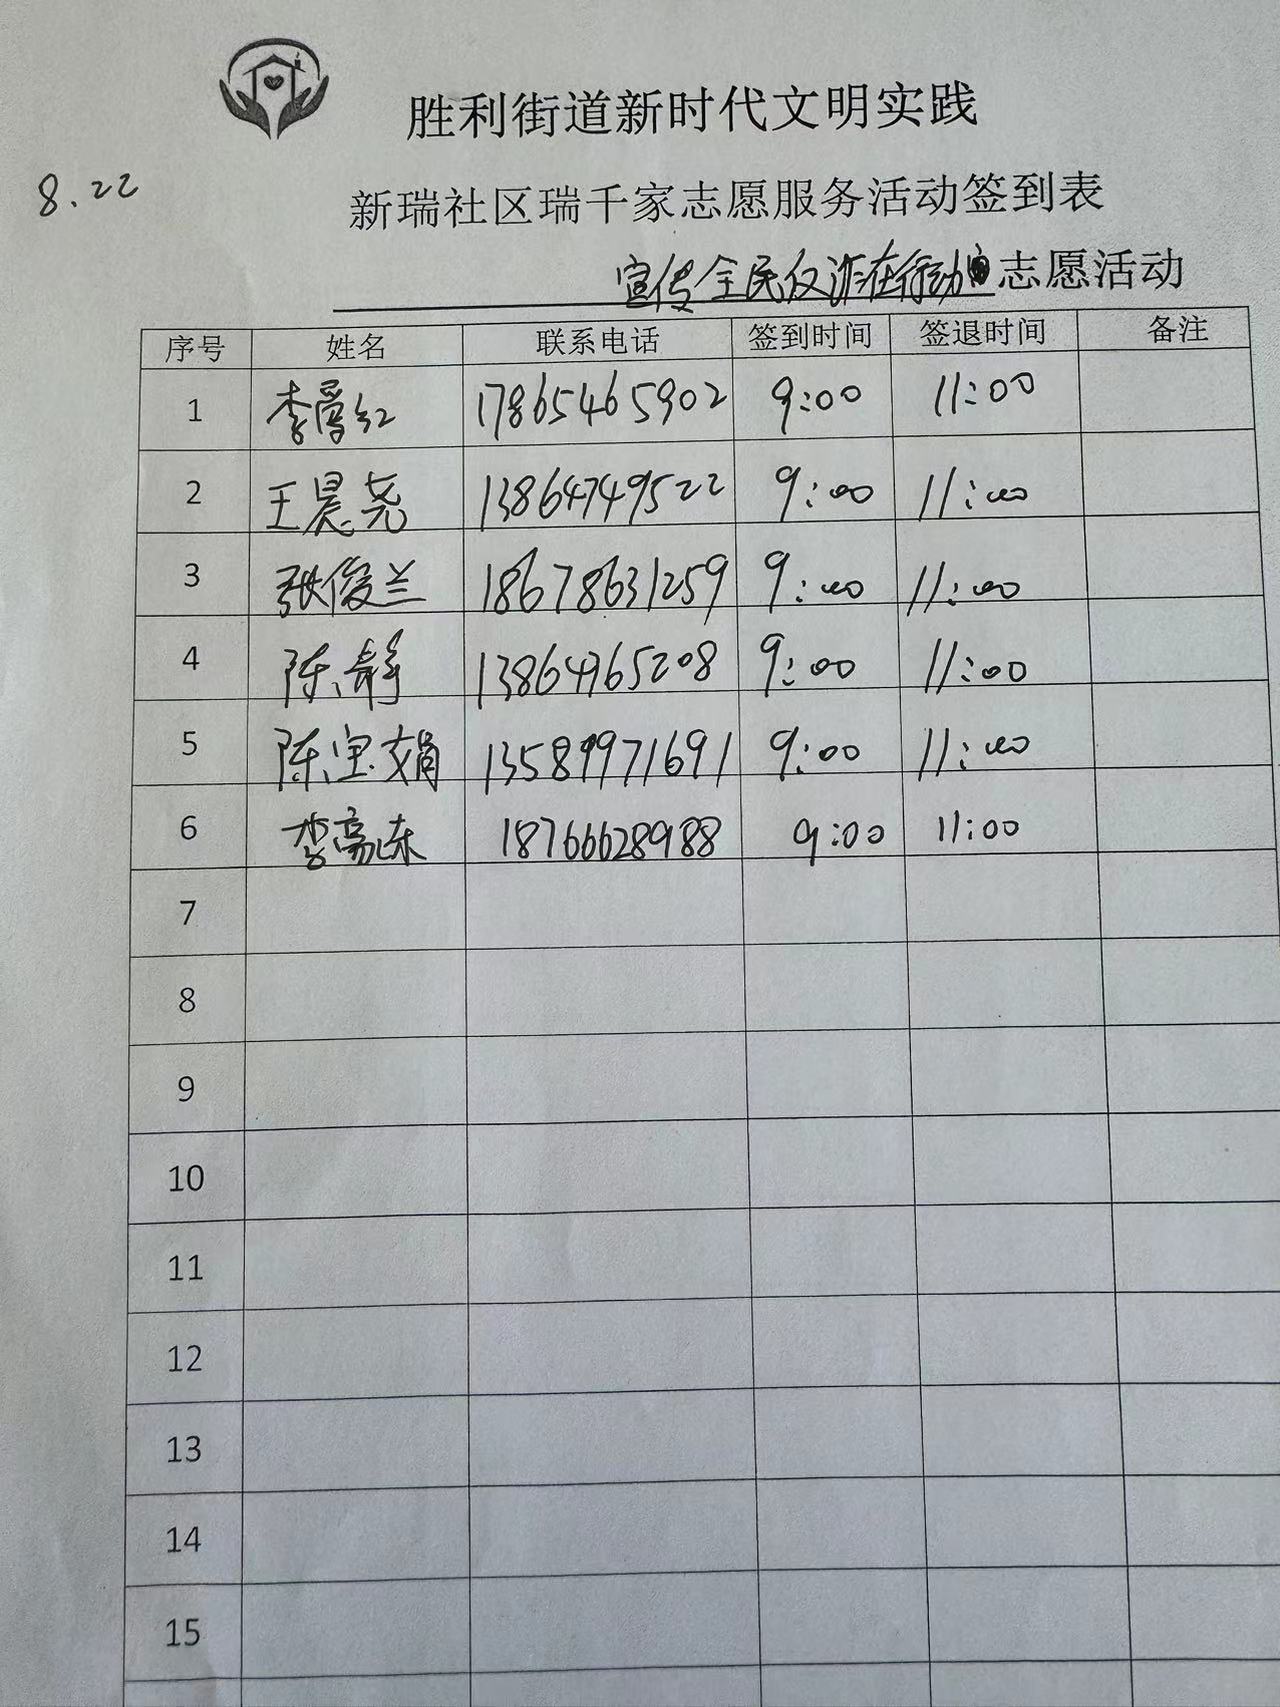 胜利街道新时代文明实践
8.22
新瑞社区瑞千家志愿服务活动签到表
宣传全民反诈在行动 志愿活动
序号 姓名 联系电话 签到时间 签退时间 备注
1 李 红 17865465902 9:00 11:00
2 王晨尧 13864749522 9:00 11:00
3 张俊兰 18678631259 9:00 11:00
4 陈静 13864765208 9:00 11:00
5 陈宝娟 13589971691 9:00 11:00
6 李 东 18766628988 9:00 11:00
7
8
9
10
11
12
13
14
15